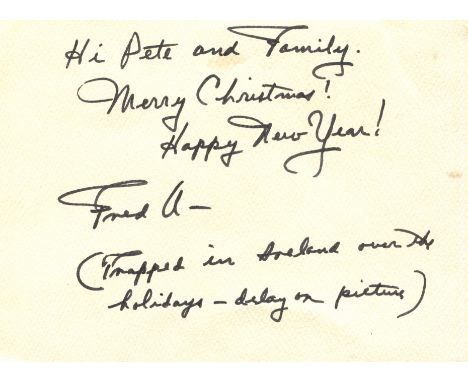 Hi Pete and Family.
Merry Christmas!
Happy New Year!
Fred A—
(Trapped in Ireland over the
holidays — delay on picture)